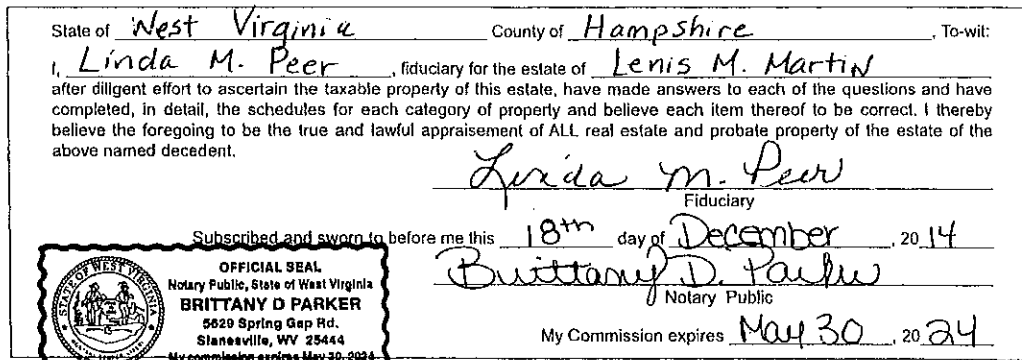 State of West Virginia County of Hampshire, To-wit:
I, Linda M. Peer, fiduciary for the estate of Lenis M. Martin
after diligent effort to ascertain the taxable property of this estate, have made answers to each of the questions and have
completed, in detail, the schedules for each category of property and believe each item thereof to be correct. I thereby
believe the foregoing to be the true and lawful appraisement of ALL real estate and probate property of the estate of the
above named decedent.
Linda M. Peer
Fiduciary
Subscribed and sworn to before me this 18th day of December, 2014
Brittany D. Parker
Notary Public
My Commission expires May 30, 2024
STATE OF WEST VIRGINIA
OFFICIAL SEAL
Notary Public, State of West Virginia
BRITTANY D PARKER
5629 Spring Gap Rd.
Slanesville, WV 25444
My commission expires May 30, 2024